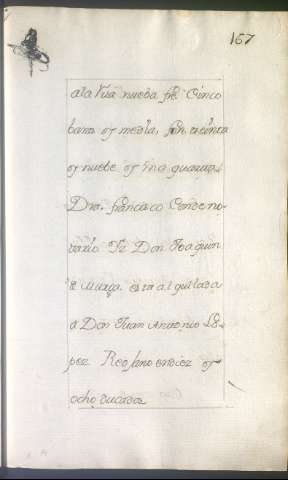 167
a la Vila nueba fte. Cinco
baras y media, fon treinta
y nuebe y una quarta.
Dra. francisco Conde no-
tario Yz Don Joaquin
de Murga esta alquilada
a Don Juan Antonio Lo-
pez Reojano en diez y
ocho ducados